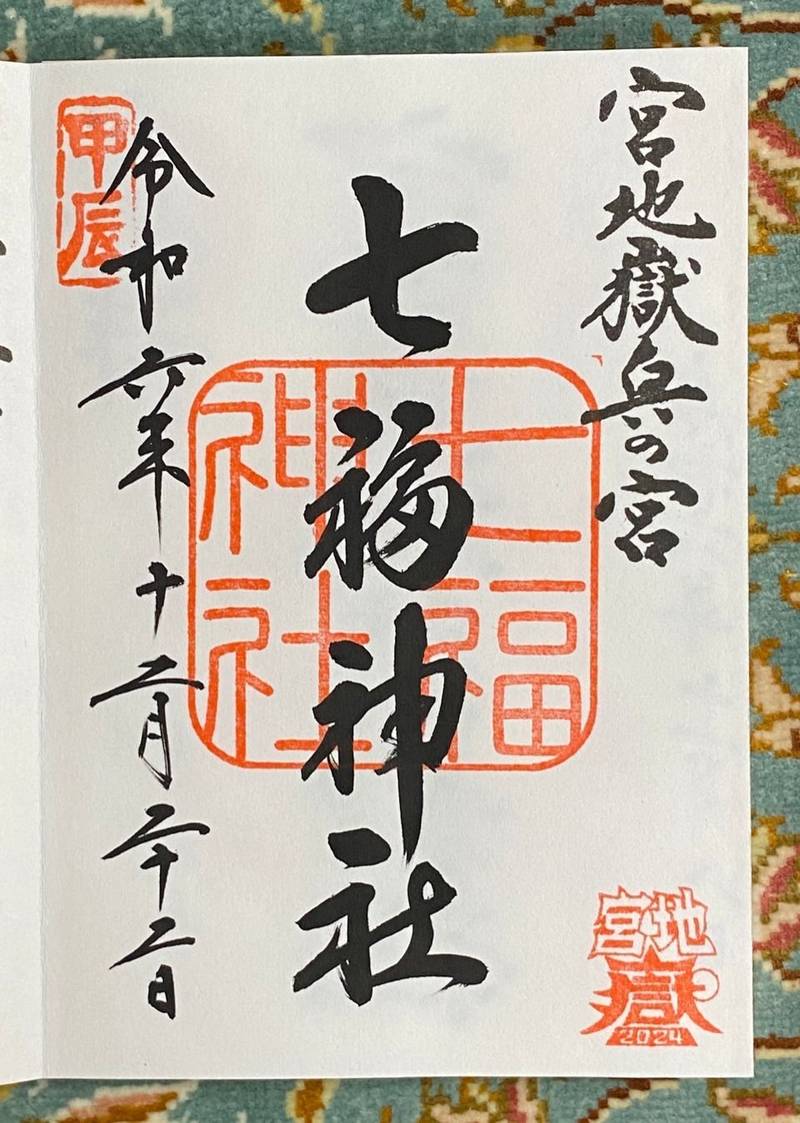 宮地嶽奥の宮
七福神社
七福
神社
令和六年十二月二十二日
甲辰
宮地
嶽
2024